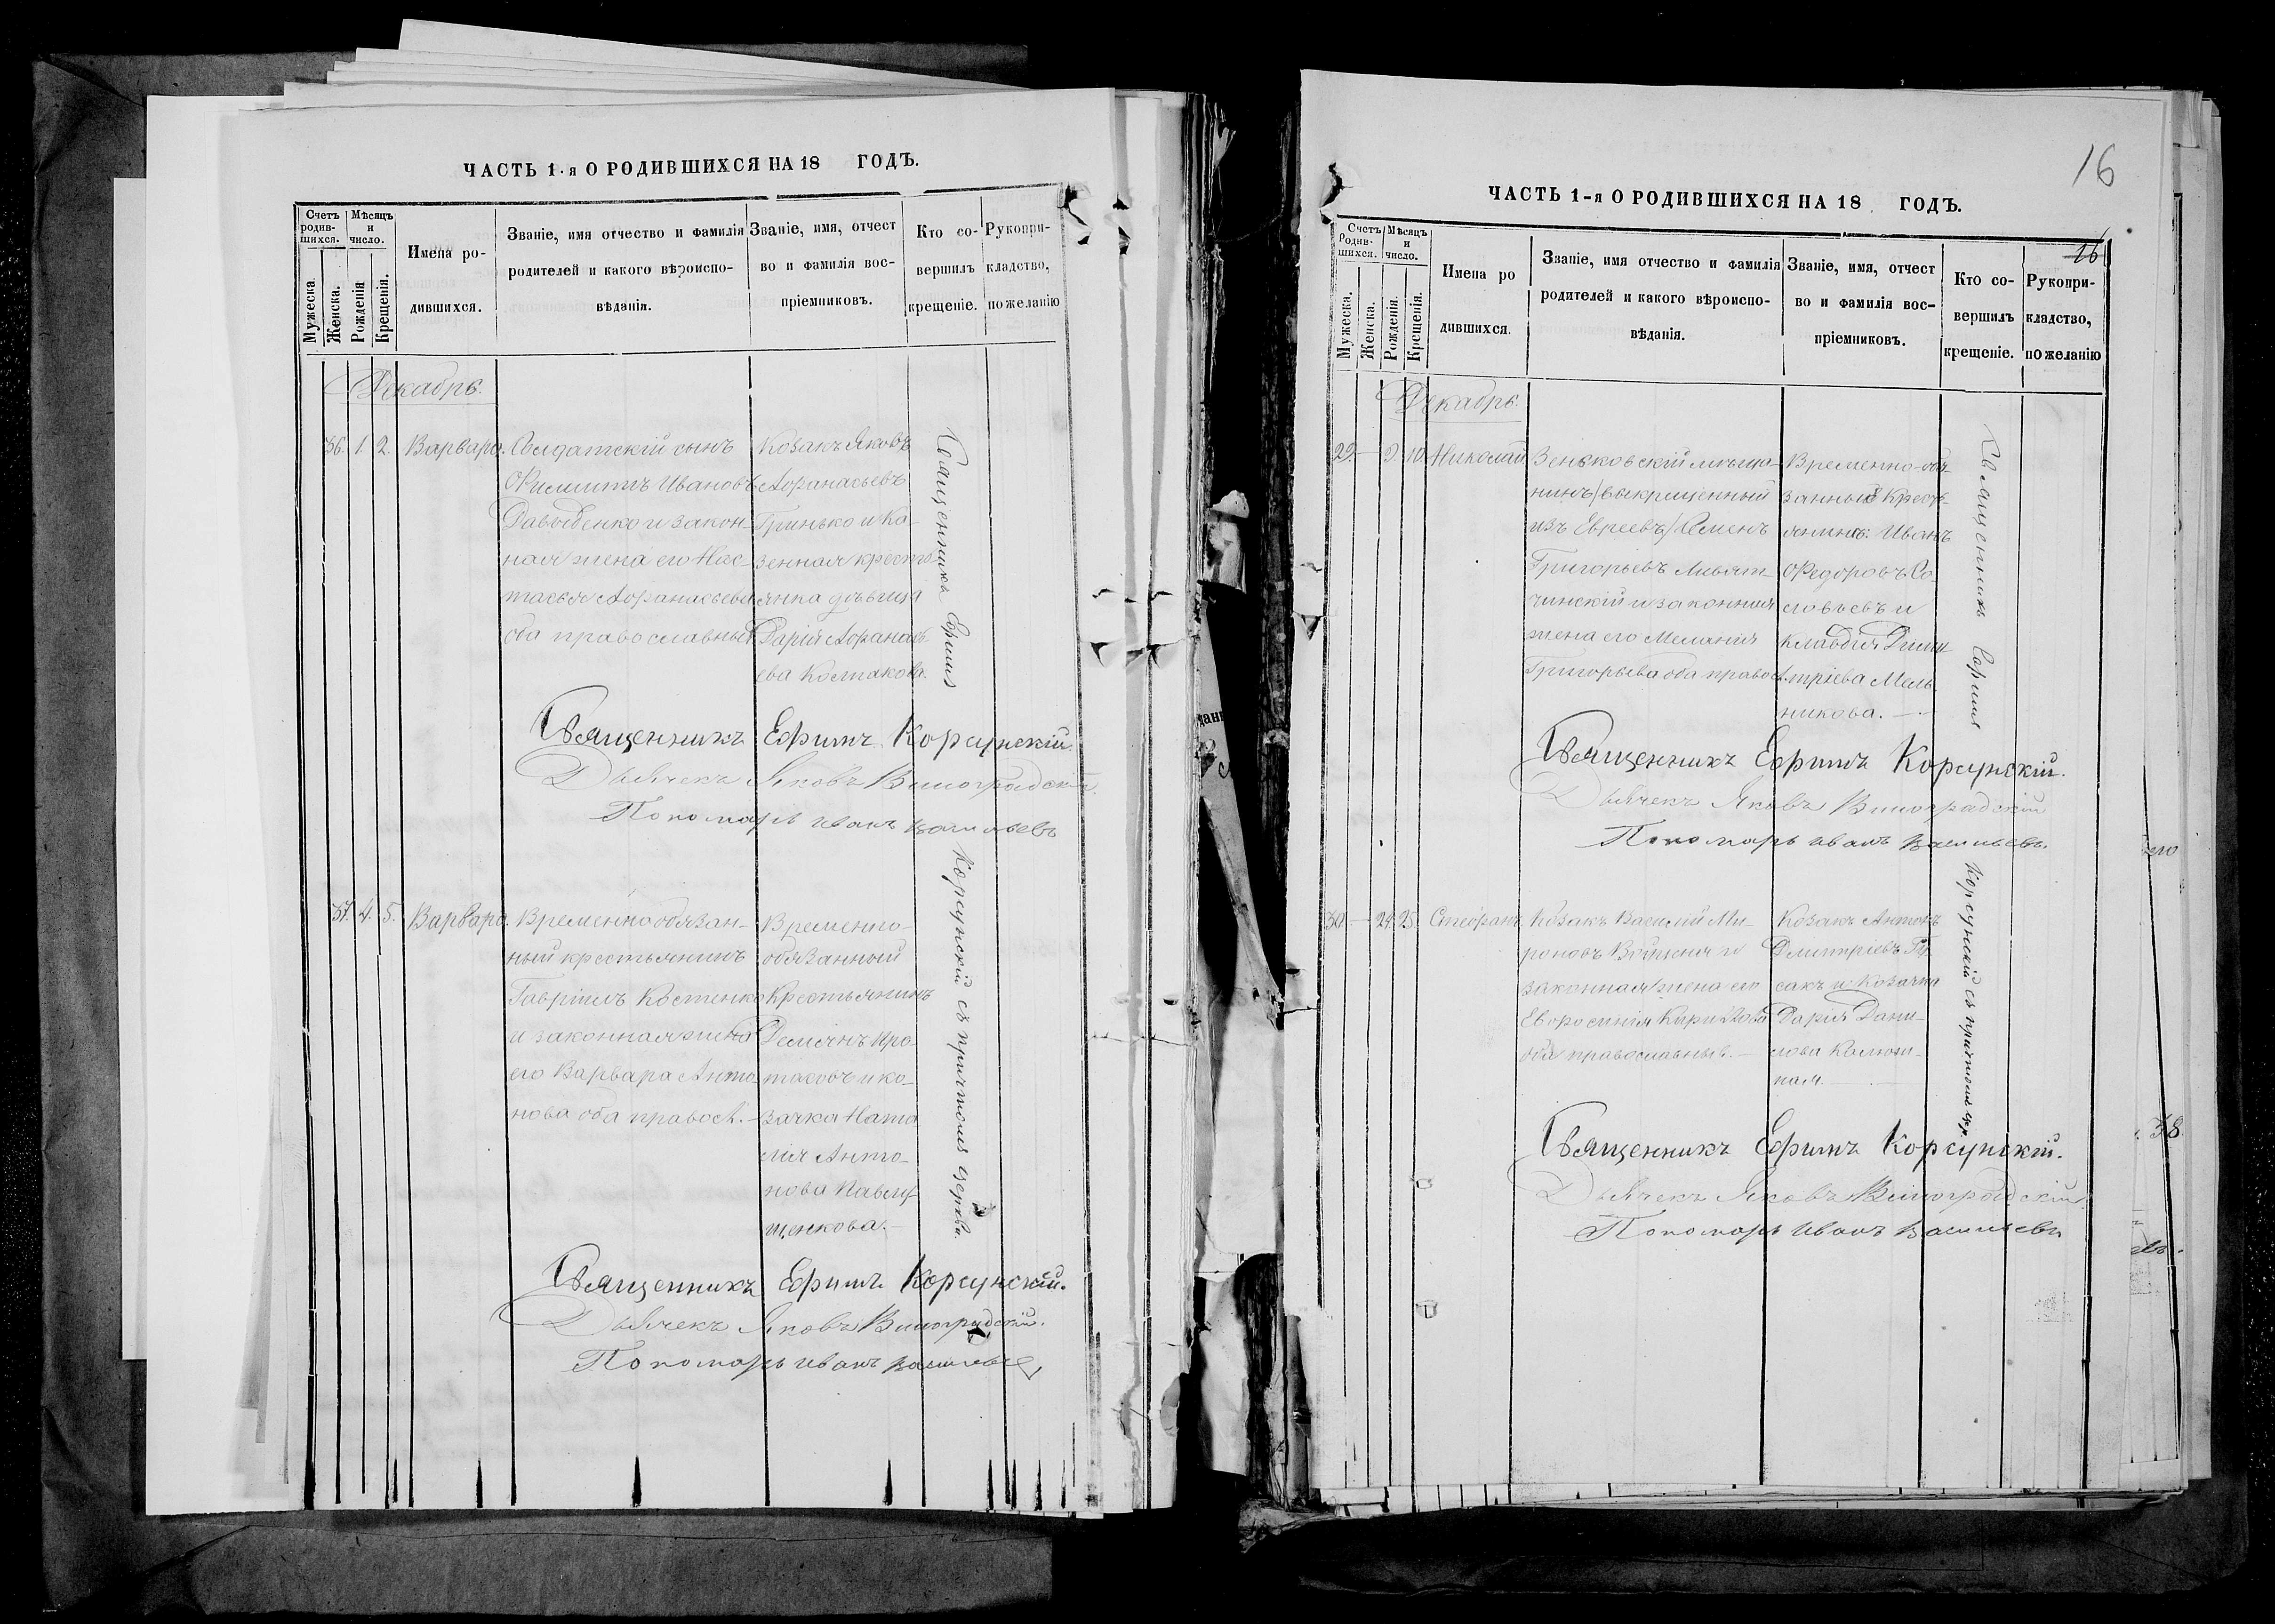 ЧАСТЬ 1-я О РОДИВШИХСЯ НА 18 ГОДЪ.
Счетъ родив- шихся.
Мѣсяцъ и число.
Мужеска.
Женска.
Рожденія
Крещенія.
Имена ро-
дившихся.
Званіе, имя отчество и фамилія
родителей и какого вѣроиспо-
вѣданія.
Званіе, имя, отчест
во и фамилія вос-
пріемниковъ.
Кто со-
вершилъ
крещеніе.
Рукопри-
кладство,
по желанію
Декабрь.
36. 1. 2. Варвара.
Солдатскій сынъ
Филиппъ Ивановъ
Давыденко и закон-
ная жена его Нас-
тасья Афанасьева
оба православные
Козакъ Яковъ
Афанасьевъ
Гринько и Ка-
зенная кресть-
янка дѣвица
Дарія Афанась-
ева Колпакова.
Священникъ Ефимъ
Священникъ Ефимъ Корсунскій
Дьячекъ Яковъ Виноградскій.
Пономарь Иванъ Васильевъ
37. 4. 5. Варвара.
Временнообязан-
ный крестьянинъ
Гавріилъ Костенко
и законная жена
его Варвара Анто-
нова оба правосл.
Временно-
обязанный
Крестьянинъ
Деміянъ Про-
тасовъ и ко-
зачка Ната
лія Анто-
нова Павлу-
щенкова.
Корсунскій съ причтомъ церкви.
Священникъ Ефимъ Корсунскій.
Дьячекъ Яковъ Виноградскій.
Пономарь Иванъ Васильевъ
16
ЧАСТЬ 1-я О РОДИВШИХСЯ НА 18 ГОДЪ.
16
Счетъ Родив- шихся.
Мѣсяцъ и число.
Мужеска.
Женска.
Рожденія.
Крещенія.
Имена ро
дившихся.
Званіе, имя отчество и фамилія
родителей и какого вѣроиспо-
вѣданія.
Званіе, имя, отчест
во и фамилія вос-
пріемниковъ.
Кто со-
вершилъ
крещеніе.
Рукопри-
кладство,
по желанію
Декабрь.
29. — 9. 10 Николай
Зеньковскій мѣща-
нинъ /выкрещенный
изъ Евреевъ/ Семенъ
Григорьевъ
и законная
жена его Меланія
Григорьева оба правосл.
Временно-обя
занный Крест-
янинъ Иванъ
Федоровъ Со-
ловьевъ и
Клавдія Дими
тріева Мель
никова. —
Священникъ Ефимъ
Священникъ Ефимъ Корсунскій.
Дьячекъ Яковъ Виноградскій
Пономарь Иванъ Васильевъ.
30. — 24. 25. Стефанъ
Козакъ Василій Ми-
роновъ и
законная жена его
Евфросинія Кирилова
оба православные. —
Козакъ Антонъ
Дмитріевъ
и Козачка
Дарія Дани-
лова
ная. —
Корсунскій съ причтомъ цер.
Священникъ Ефимъ Корсунскій.
Дьячекъ Яковъ Виноградскій.
Пономарь Иванъ Васильевъ
38